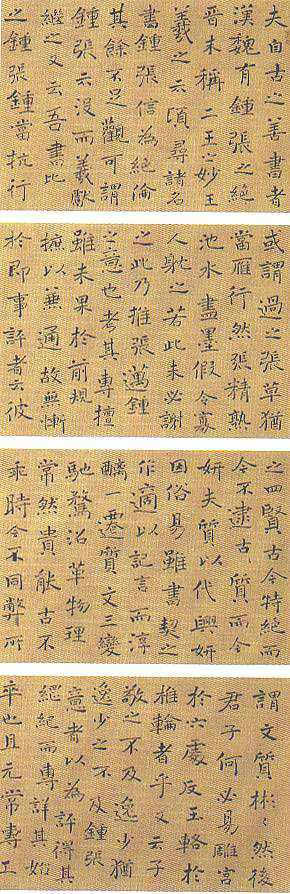 夫自古之善書者
漢魏有鍾張之絕
晉末稱二王之妙王
羲之云頃尋諸名
書鍾張信為絕倫
其餘不足觀可謂
鍾張云沒而羲獻
繼之又云吾書比
之鍾張鍾當抗行
或謂過之張草猶
當雁行然張精熟
池水盡墨假令寡
人耽之若此未必謝
之此乃推張邁鍾
之意也考其專擅
雖未果於前規
摭以兼通故無慚
於即事評者云彼
之四賢古今特絕而
今不逮古〻質而今
妍夫質以代興妍
因俗易雖書契之
作適以記言而淳
醨一遷質文三變
馳騖沿革物理
常然貴能古不
乖時今不同弊所
謂文質彬〻然後
君子何必易雕宮
於穴處反玉輅於
椎輪者乎又云子
敬之不及逸少猶
逸少之不及鍾張
意者以為評得其
紀而專詳其始
卒也且元常專工